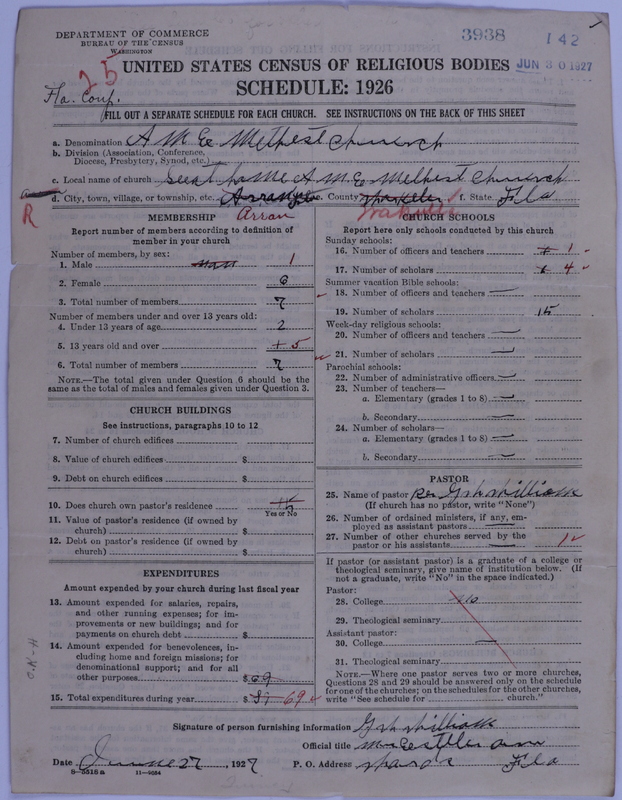 DEPARTMENT OF COMMERCE
BUREAU OF THE CENSUS
WASHINGTON
3938
142
JUN 30 1927
25
Fla. Conf.
UNITED STATES CENSUS OF RELIGIOUS BODIES
SCHEDULE: 1926
FILL OUT A SEPARATE SCHEDULE FOR EACH CHURCH. SEE INSTRUCTIONS ON THE BACK OF THIS SHEET
a. Denomination A M E
b. Division (Association, Conference,
Diocese, Presbytery, Synod, etc.)
c. Local name of church A M E
d. City, town, village, or township, etc. e. County f. State Fla
R
Arran
Wakulla
MEMBERSHIP
Report number of members according to definition of
member in your church
Number of members, by sex:
1. Male 1
2. Female 6
3. Total number of members 7
Number of members under and over 13 years old:
4. Under 13 years of age 2
5. 13 years old and over 5
6. Total number of members 7
NOTE.—The total given under Question 6 should be the
same as the total of males and females given under Question 3.
CHURCH BUILDINGS
See instructions, paragraphs 10 to 12
7. Number of church edifices
8. Value of church edifices $
9. Debt on church edifices $
10. Does church own pastor's residence
Yes or No
11. Value of pastor's residence (if owned by
church) $
12. Debt on pastor's residence (if owned by
church) $
EXPENDITURES
Amount expended by your church during last fiscal year
13. Amount expended for salaries, repairs,
and other running expenses; for im-
provements or new buildings; and for
payments on church debt $
14. Amount expended for benevolences, in-
cluding home and foreign missions; for
denominational support; and for all
other purposes $ 69
15. Total expenditures during year $ 69
O.K-H
CHURCH SCHOOLS
Report here only schools conducted by this church
Sunday schools:
16. Number of officers and teachers 1
17. Number of scholars 4
Summer vacation Bible schools:
18. Number of officers and teachers
19. Number of scholars 15
Week-day religious schools:
20. Number of officers and teachers
21. Number of scholars
Parochial schools:
22. Number of administrative officers
23. Number of teachers—
a. Elementary (grades 1 to 8)
b. Secondary
24. Number of scholars—
a. Elementary (grades 1 to 8)
b. Secondary
PASTOR
25. Name of pastor
(If church has no pastor, write "None")
26. Number of ordained ministers, if any, em-
ployed as assistant pastors
27. Number of other churches served by the
pastor or his assistants 1
If pastor (or assistant pastor) is a graduate of a college or
theological seminary, give name of institution below. (If
not a graduate, write "No" in the space indicated.)
Pastor:
28. College No
29. Theological seminary
Assistant pastor:
30. College
31. Theological seminary
NOTE.—Where one pastor serves two or more churches,
Questions 28 and 29 should be answered only on the schedule
for one of the churches; on the schedules for the other churches,
write "See schedule for church."
Signature of person furnishing information
Official title
Date June 27, 1927 P. O. Address Fla
8-5516 a 11-9684